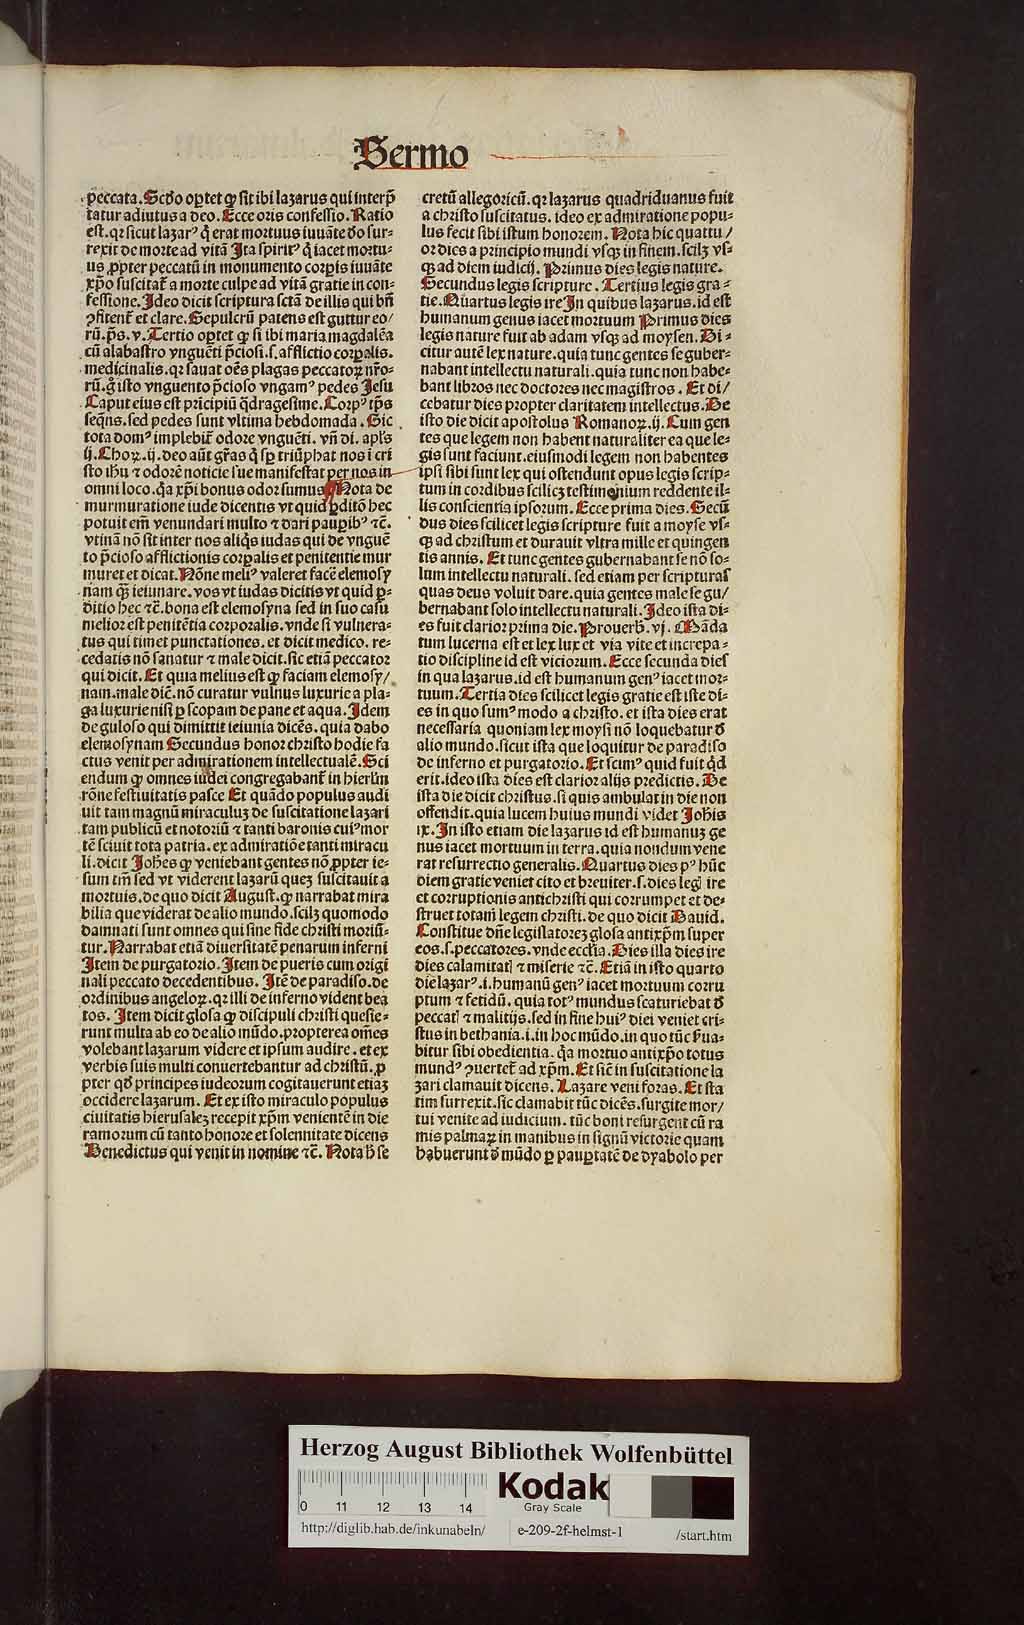 Sermo
peccata. Scd̃o oꝑtet ꝙ sit ibi lazarus qui interp̃
tatur adiutus a deo. Ecce oris confessio. Ratio
est. qꝛ sicut lazarꝰ q̇ erat mortuus iuuãte do sur-
rexit de morte ad vitã Ita spiritꝰ q̇ iacet mortu-
us ꝓpter peccatũ in monumento corꝑis iuuãte
xp̃o suscitat̃ a morte culpe ad vitã gratie in con-
fessione. Ideo dicit scriptura sctã de illis qui bñ
ꝯfitent̃ et clare. Sepulcrũ patens est guttur eo/
rũ. p̃s. v. Tertio oꝑtet ꝙ sit ibi maria magdalẽa
cũ alabastro vnguẽti p̃ciosi. s. afflictio corꝑalis.
medicinalis. qꝛ sanat oẽs plagas peccatoꝝ nr̃o-
rũ. g̊ isto vnguento p̃cioso vngamꝰ pedes Jesu
Caput eius est prĩcipiũ q̃dragesime. Corpꝰ tp̃s
seqñs. sed pedes sunt vltima hebdomada. Sic
tota domꝰ implebit̃ odore vnguẽti. vñ di. apl̃s
ij. Choꝝ. ij. deo aũt gr̃as q̇ sp̃ triũphat nos ĩ cri
sto ihu ⁊ odorẽ noticie sue manifestat per nos in
omni loco. q̃a xp̃i bonus odor sumus Nota de
murmuratione iude dicentis vt quid ꝑditõ hec
potuit em̃ venundari multo ⁊ dari pauꝑibꝰ ⁊c̃.
vtinã nõ sit inter nos aliq̃s iudas qui de vnguẽ
to p̃cioso afflictionis corꝑalis et penitentie mur
muret et dicat. Nõne meliꝰ valeret facẽ elemosy
nam q̃ȝ ieiunare. vos vt iudas dicitis vt quid ꝑ-
ditio hec ⁊c̃. bona est elemosyna sed in suo casu
melior est penitẽtia corporalis. vnde si vulnera-
tus qui timet punctationes. et dicit medico. re-
cedatis nõ sanatur ⁊ male dicit. sic etiã peccator
qui dicit. Et quia melius est ꝙ faciam elemosy/
nam. male dic̃. nõ curatur vulnus luxurie a pla-
ga luxurie nisi ꝑ scopam de pane et aqua. Idem
de guloso qui dimittit ieiunia dicẽs. quia dabo
elemosynam Secundus honor christo hodie fa
ctus venit per admirationem intellectualẽ. Sci
endum ꝙ omnes iudei congregabant̃ in hierl̃m
rõne festiuitatis pasce Et quãdo populus audi
uit tam magnũ miraculuȝ de suscitatione lazari
tam publicũ et notoriũ ⁊ tanti baronis cuiꝰ mor
tẽ sciuit tota patria. ex admiratiõe tanti miracu
li. dicit Joh̃es ꝙ veniebant gentes nõ ꝓpter ie-
sum tm̃ sed vt viderent lazarũ queȝ suscitauit a
mortuis. de quo dicit August. ꝙ narrabat mira
bilia que viderat de alio mundo. scilȝ quomodo
damnati sunt omnes qui sine fide christi moriũ-
tur. Narrabat etiã diuersitatẽ penarum inferni
Item de purgatorio. Item de pueris cum origi
nali peccato decedentibus. Itẽ de paradiso. de
ordinibus angeloꝝ. qꝛ illi de inferno vident bea
tos. Item dicit glosa ꝙ discipuli christi quesie-
runt multa ab eo de alio mũdo. propterea om̃es
volebant lazarum videre et ipsum audire. et ex
verbis suis multi conuertebantur ad christũ. ꝓ
pter qd̃ principes iudeorum cogitauerunt etiaȝ
occidere lazarum. Et ex isto miraculo populus
ciuitatis hierusaleȝ recepit xp̃m venientẽ in die
ramorum cũ tanto honore et solennitate dicens
Benedictus qui venit in nomine ⁊c̃. Nota h̃ se
cretũ allegoricũ. qꝛ lazarus quadriduanus fuit
a christo suscitatus. ideo ex admiratione popu-
lus fecit sibi istum honorem. Nota hic quattu/
or dies a principio mundi vsqȝ in finem. scilȝ vs-
qȝ ad diem iudicij. Primus dies legis nature.
Secundus legis scripture. Tertius legis gra-
tie. Quartus legis ire In quibus lazarus. id est
humanum genus iacet mortuum Primus dies
legis nature fuit ab adam vsqȝ ad moysen. Di-
citur autẽ lex nature. quia tunc gentes se guber-
nabant intellectu naturali. quia tunc non habe-
bant libros nec doctores nec magistros. Et di/
cebatur dies propter claritatem intellectus. De
isto die dicit apostolus Romanoꝝ. ij. Cum gen
tes que legem non habent naturaliter ea que le-
gis sunt faciunt. eiusmodi legem non habentes
ipsi sibi sunt lex qui ostendunt opus legis scrip-
tum in cordibus scilicȝ testimonium reddente il-
lis conscientia ipsorum. Ecce prima dies. Secũ
dus dies scilicet legis scripture fuit a moyse vs-
qȝ ad christum et durauit vltra mille et quingen
tis annis. Et tunc gentes gubernabant se nõ so-
lum intellectu naturali. sed etiam per scripturas
quas deus voluit dare. quia gentes male se gu/
bernabant solo intellectu naturali. Ideo ista di-
es fuit clarior prima die. Prouerb̃. vj. Mãda
tum lucerna est et lex lux et via vite et increpa-
tio discipline id est viciorum. Ecce secunda dies
in qua lazarus. id est humanum genꝰ iacet mor-
tuum. Tertia dies scilicet legis gratie est iste di-
es in quo sumꝰ modo a christo. et ista dies erat
necessaria quoniam lex moysi nõ loquebatur d̃
alio mundo. sicut ista que loquitur de paradiso
de inferno et purgatorio. Et scimꝰ quid fuit q̇d
erit. ideo ista dies est clarior alijs predictis. De
ista die dicit christus. si quis ambulat in die non
offendit. quia lucem huius mundi videt Joh̃is
ix. In isto etiam die lazarus id est humanuȝ ge
nus iacet mortuum in terra. quia nondum vene
rat resurrectio generalis. Quartus dies pꝰ hũc
diem gratie veniet cito et breuiter. s. dies legꝭ ire
et corruptionis antichristi qui corrumpet et de-
struet totam legem christi. de quo dicit Dauid.
Constitue dñe legislatoreȝ glosa antixp̃m super
eos. s. peccatores. vnde eccl̃ia. Dies illa dies ire
dies calamitatꝭ ⁊ miserie ⁊c̃. Etiã in isto quarto
die lazarꝰ. i. humanũ genꝰ iacet mortuum corru
ptum ⁊ fetidũ. quia totꝰ mundus scaturiebat d̃
peccatꝭ ⁊ malitijs. sed in fine huiꝰ diei veniet cri-
stus in bethania. i. in hoc mũdo. in quo tũc ẜua-
bitur sibi obedientia. q̃a mortuo antixp̃o totus
mundꝰ ꝯuertet̃ ad xp̃m. Et sic̃ in suscitatione la
zari clamauit dicens. Lazare veni foras. Et sta
tim surrexit. sic clamabit tũc dicẽs. surgite mor/
tui venite ad iudicium. tũc boni resurgent cũ ra
mis palmaꝝ in manibus in signũ victorie quam
habuerunt d̃ mũdo ꝑ pauꝑtatẽ de dyabolo per
Herzog August Bibliothek Wolfenbüttel
0 11 12 13 14
Kodak
Gray Scale
http://diglib.hab.de/inkunabeln/
e-209-2f-helmst-1
/start.htm